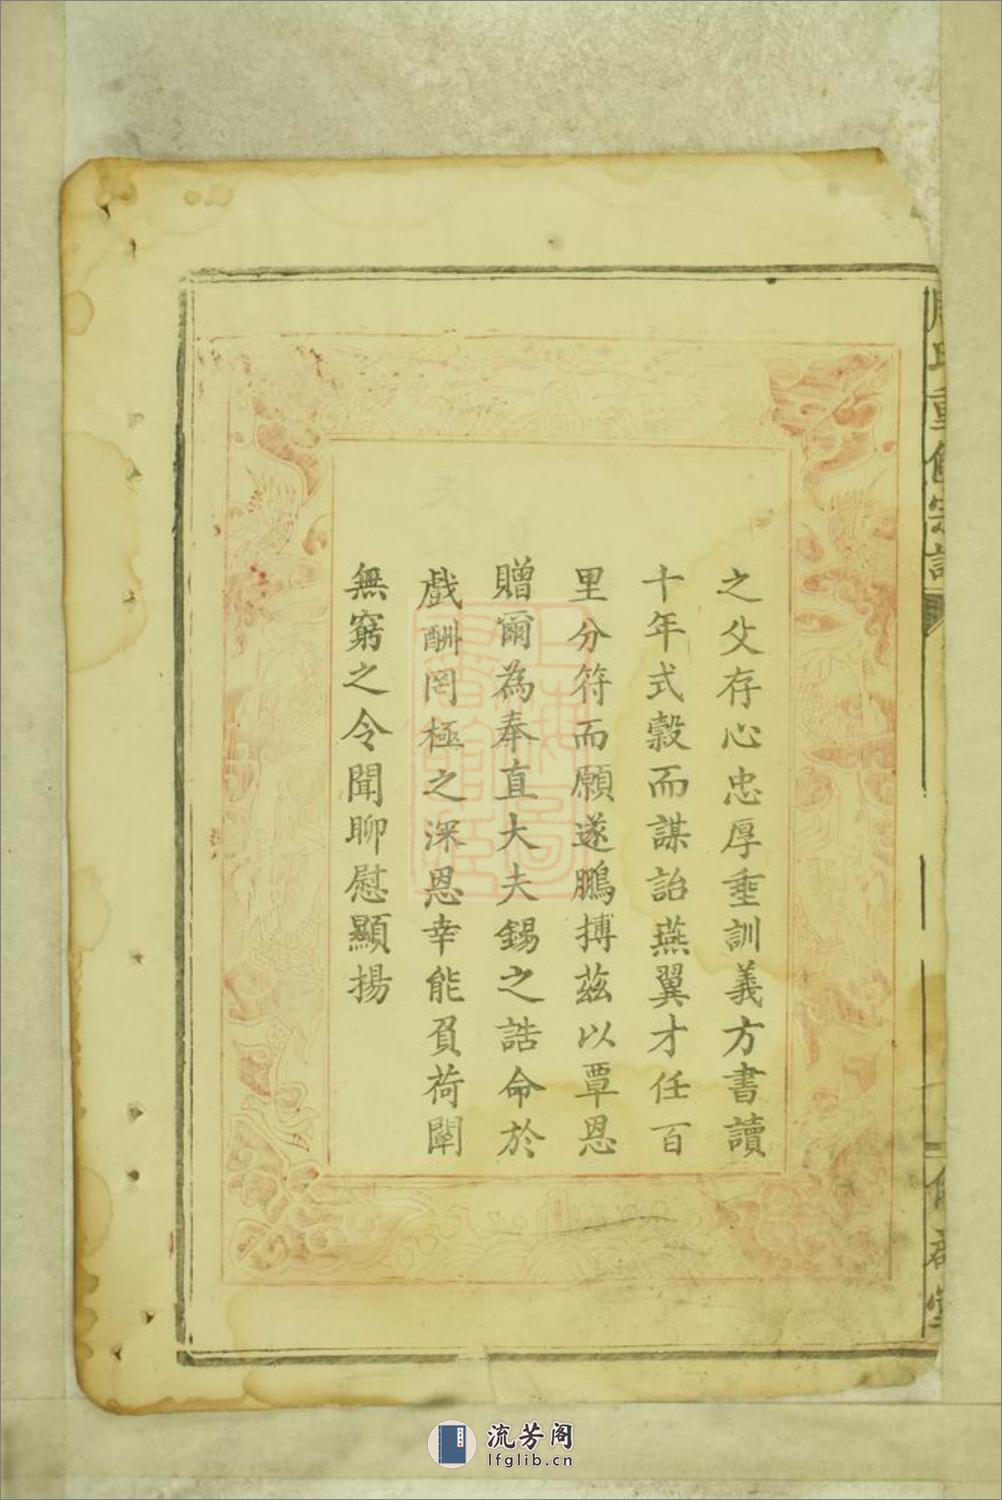 周氏重修宗譜
之父存心忠厚垂訓義方書讀
十年式穀而謀詒燕翼才任百
里分符而願遂鵬摶茲以覃恩
贈爾為奉直大夫錫之誥命於
戲酬罔極之深恩幸能負荷闡
無窮之令聞聊慰顯揚
流芳阁
lfglib.cn